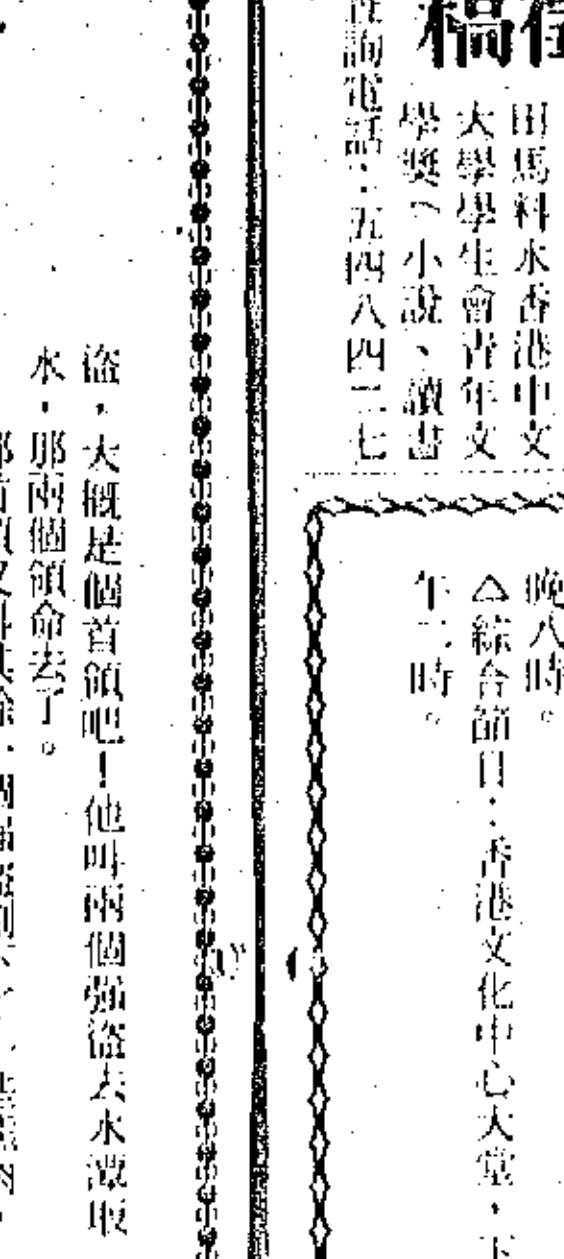 稿
田馬料水香港中文
大學學生會青年文
學獎（小說、讀書
查詢電話：五四八四二七
晚八時。
△綜合節目：香港文化中心大堂，下
午二時。
盜，大概是個首領吧！他叫兩個強盜去水潭取
水，那兩個領命去了。